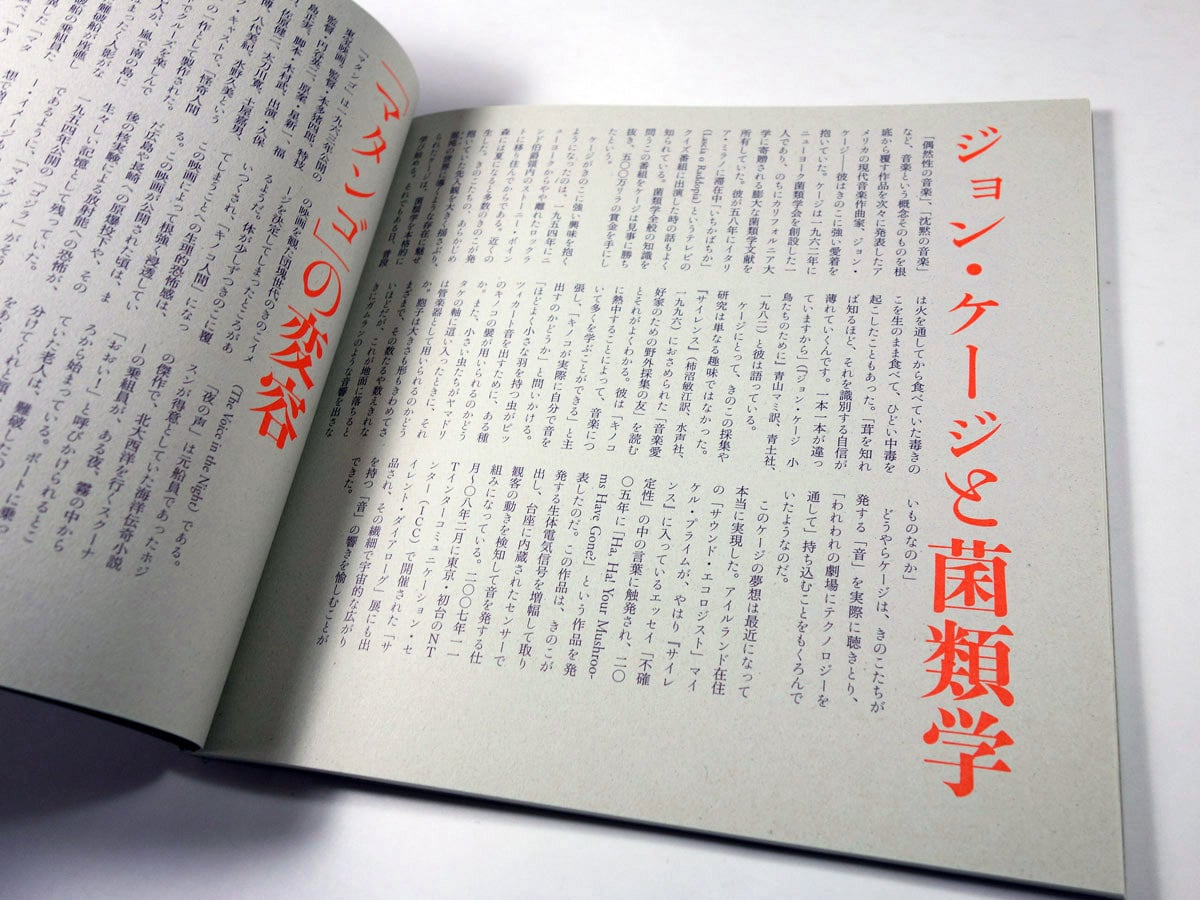 ジョン・ケージと菌類学
「偶然性の音楽」、「沈黙の音楽」
など、音楽という概念そのものを根
底から覆す作品を次々に発表したア
メリカの現代音楽作曲家、ジョン・
ケージ――彼はきのこに強い愛着を
抱いていた。ケージは一九六二年に
ニューヨーク菌類学会を創設した一
人であり、のちにカリフォルニア大
学に寄贈される膨大な菌類学文献を
所有していた。彼が五八年にイタリ
ア・ミラノに滞在中「いちかばちか」
(Lascia o Raddopia) というテレビの
クイズ番組に出演した時の話もよく
知られている。菌類学全般の知識を
問うこの番組をケージは見事に勝ち
抜き、五〇〇万リラの賞金を手にし
たという。
ケージがきのこに強い興味を抱く
ようになったのは、一九五四年にニ
ューヨークからやや離れたロックラ
ンド伯爵領内のストーニー・ポイン
トに移り住んでからである。近くの
森には夏になると多数のきのこが発
生した。きのこたちの、あらかじめ
抱いていた先入観を大きく揺さぶり、
の世界に導くような存在に魅せ
られたケージは、菌類学を本格的に
学び始める。それでもある日、普段
は火を通してから食べていた毒きの
こを生のまま食べて、ひどい中毒を
起こしたこともあった。「茸を知れ
ば知るほど、それを識別する自信が
薄れていくんです。一本一本が違っ
ていますから」(『ジョン・ケージ 小
鳥たちのために』青山マミ訳、青土社、
一九八二)と彼は語っている。
ケージにとって、きのこの採集や
研究は単なる趣味ではなかった。
『サイレンス』(柿沼敏江訳、水声社、
一九九六)におさめられた「音楽愛
好家のための野外採集の友」を読む
とそれがよくわかる。彼は「キノコ
に熱中することによって、音楽につ
いて多くを学ぶことができる」と主
張し、「キノコが実際に自分で音を
出すのかどうか」と問いかける。
「ほどよく小さな羽を持つ虫がピッ
ツィカート音を出すために、ある種
のキノコの襞が用いられるのかどう
か。また、小さい虫たちがヤマドリ
タケの軸に這い入ったときに、それ
は管楽器として用いられるのかどう
か。胞子は大きさも形もきわめてさ
まざまで、その数たるや数えきれな
いほどだが、これが地面に落ちると
きにガムランのような音響を出さな
いものなのか」
どうやらケージは、きのこたちが
発する「音」を実際に聴きとり、
「われわれの劇場にテクノロジーを
通して」持ち込むことをもくろんで
いたようなのだ。
このケージの夢想は最近になって
本当に実現した。アイルランド在住
の「サウンド・エコロジスト」マイ
ケル・プライムが、やはり『サイレ
ンス』に入っているエッセイ「不確
定性」の中の言葉に触発され、二〇
〇五年に「Ha, Ha! Your Mushroo-
ms Have Gone!」という作品を発
表したのだ。この作品は、きのこが
発する生体電気信号を増幅して取り
出し、台座に内蔵されたセンサーで
観客の動きを検知して音を発する仕
組みになっている。二〇〇七年一一
月〜〇八年二月に東京・初台のNT
Tインターコミュニケーション・セ
ンター(ICC)で開催された「サ
イレント・ダイアローグ」展にも出
品され、その繊細で宇宙的な広がり
を持つ「音」の響きを愉しむことが
できた。
「マタンゴ」の変容
「マタンゴ」は一九六三年公開の
東宝映画。監督・本多猪四郎、特技
監督・円谷英二、原案・星新一、福
島正実、脚本・木村武、出演・久保
明、土屋嘉男、
佐原健二、太刀川寛、
八代美紀、水野久美という
キャストで、「怪奇人間
の一作として製作された。
でクルーズを楽しんで
人が、嵐で南の島に
まったく人影がな
難破船が座礁し
船の乗組員た
した「マタ
の映画を観た団塊世代のきのこイメ
ージを決定してしまったところがあ
るようだ。体が少しずつきのこに覆
いつくされ、「キノコ人間」になっ
てしまうことへの生理的恐怖感は、
この映画によって根強く浸透してい
る。この映画が公開された頃は、ま
だ広島や長崎への原爆投下や、その
後の核実験による放射能への恐怖が、
生々しい記憶として残っていた。
一九五四年公開の『ゴジラ』がそう
であるように、『マタンゴ』
「夜の声」
(The Voice in the Night)である。
は元船員であったホジ
スンが得意としていた海洋伝奇小説
の傑作で、北大西洋を行くスクーナ
ーの乗組員が、ある夜、霧の中から
「おおい!」と呼びかけられるとこ
ろから始まっている。ボートに乗っ
ていた老人は、難破した
分けてくれと頼